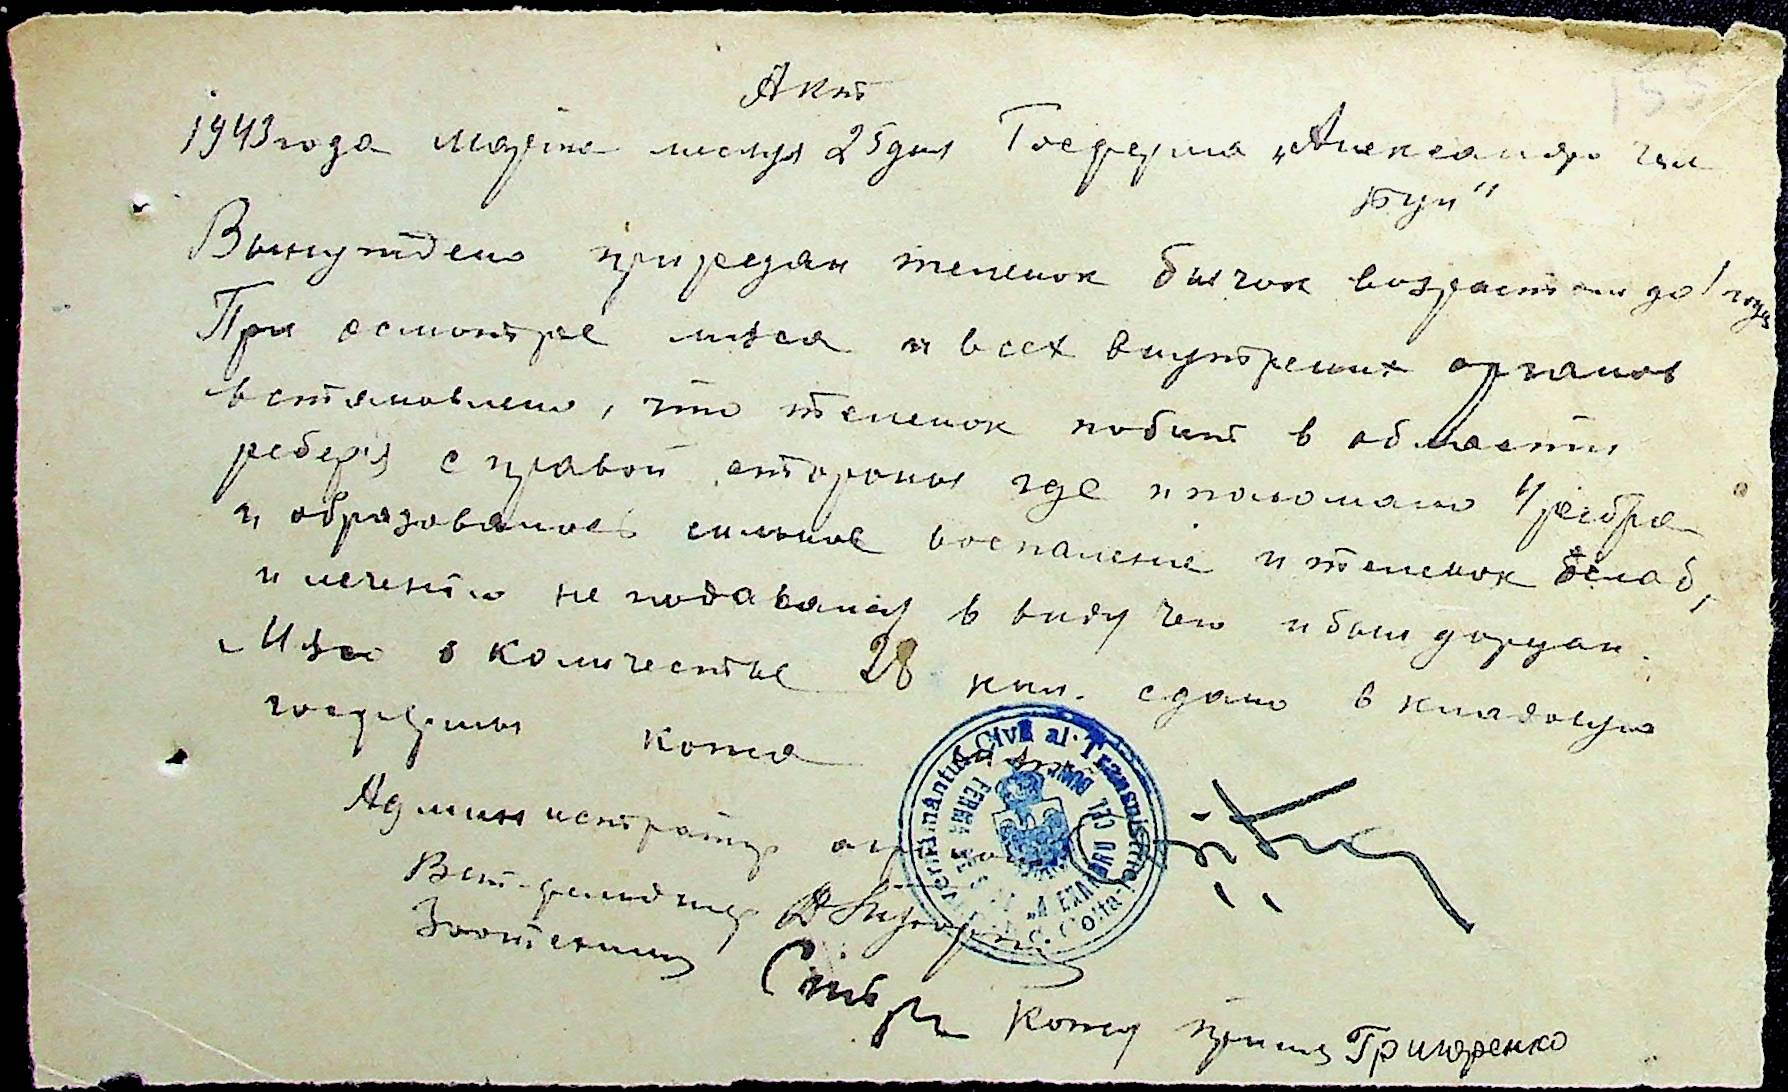 155
Акт
1943 года марта месяця 25 дня Госферма „Александр чел
Бун"
Вынуждено прирезан теленок бычок возрастом до 1 года
При осмотре мяса и всех внутрених органов
встановлено, что теленок побит в области
ребер'я с правой стороны где и поломано 4 ребра
и образовалось сильное воспаление и теленок ослаб,
и лечению не подавался в виду чего и был дорезан.
Мясо в количестве 28 кил. сдано в кладовую
госфермы кожа
Администратор
Вет-фельдшер
Зоотехник
Кожу принял Григоренко
Guvernământul Civil al Transnistriei
FERMA DE STAT „ALEXANDRU CEL BUN"
Jud. Golta